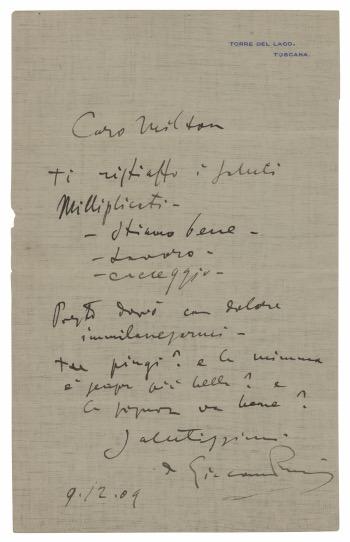 TORRE DEL LAGO.
TOSCANA.
Caro Milton
ti rispiaffo i saluti
Milliplicati -
- Stiamo bene -
- Lavoro -
- cacceggio -
Presto dovrò con dolore
immilanesarmi -
tu pingi? e la mimma
è sempre più bella? e
la signora va bene?
Salutissimi
da Giacomo Puccini
9.12.09